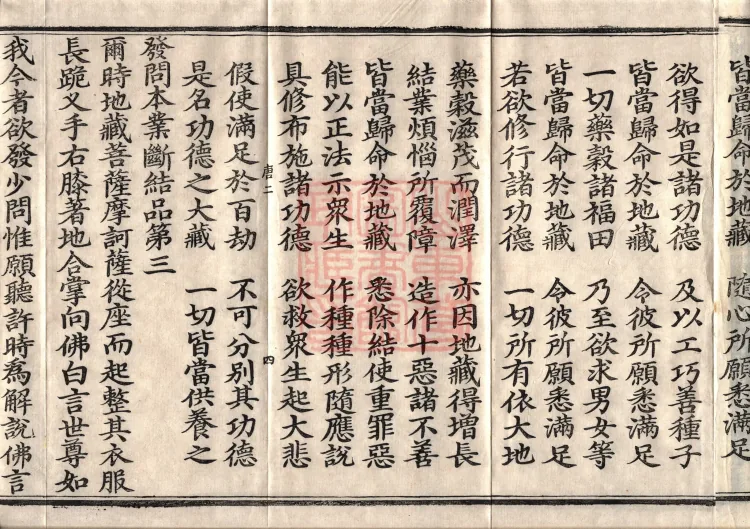 皆當歸命於地藏　隨心所願悉滿足
欲得如是諸功德　及以工巧善種子
皆當歸命於地藏　令彼所願悉滿足
一切藥穀諸福田　乃至欲求男女等
皆當歸命於地藏　令彼所願悉滿足
若欲修行諸功德　一切所有依大地
藥穀滋茂而潤澤　亦因地藏得增長
結業煩惱所覆障　造作十惡諸不善
皆當歸命於地藏　悉除結使重罪惡
能以正法示眾生　作種種形隨應說
具修布施諸功德　欲救眾生起大悲
唐二　四
假使滿足於百劫　不可分別其功德
是名功德之大藏　一切皆當供養之
發問本業斷結品第三
爾時地藏菩薩摩訶薩從座而起整其衣服
長跪叉手右膝著地合掌向佛白言世尊如
我今者欲發少問惟願聽許時為解說佛言